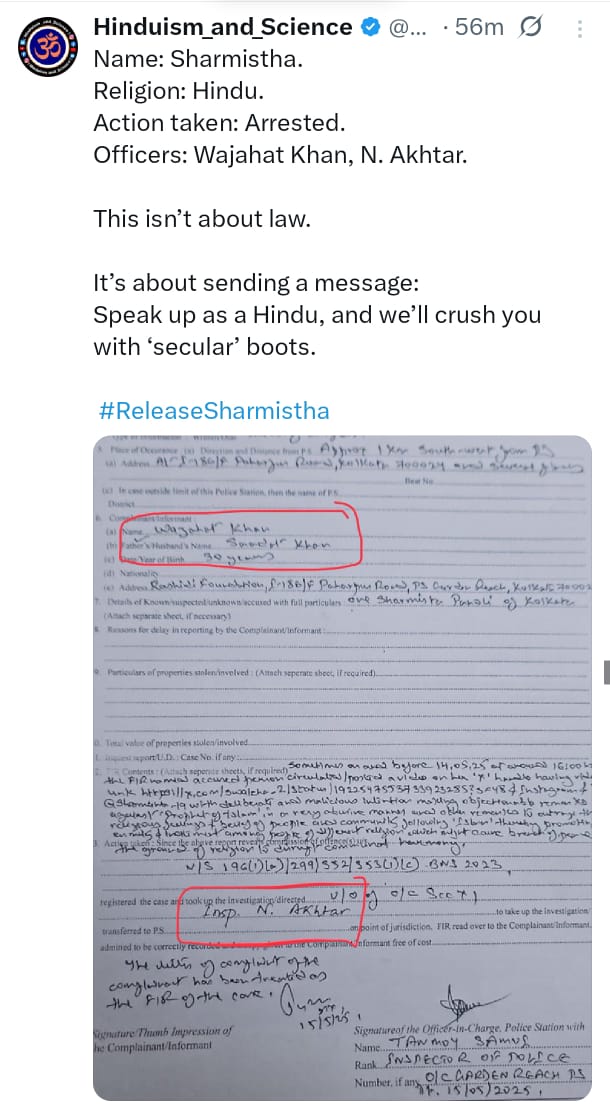 Hinduism_and_Science @... · 56m
Name: Sharmistha.
Religion: Hindu.
Action taken: Arrested.
Officers: Wajahat Khan, N. Akhtar.
This isn’t about law.
It’s about sending a message:
Speak up as a Hindu, and we’ll crush you
with ‘secular’ boots.
#ReleaseSharmistha
Place of Occurrence (a) Direction and Distance from P.S. Approx 1 Km South west from PS
(a) Address
Beat No
(c) In case outside limit of this Police Station, then the name of P.S.
District
6. Complainant/Informant
(a) Name Wajahat Khan
(b) Father's/Husband's Name Khan
(c) Date/Year of Birth 30 years
(d) Nationality
(e) Address Rashidi Foundation, Paharpur Road, PS Garden Reach,
7. Details of Known/suspected/unknown/accused with full particulars one Sharmista Panoli of Kolkata
(Attach separate sheet, if necessary)
8. Reasons for delay in reporting by the Complainant/Informant :
9. Particulars of properties stolen/involved : (Attach seperate sheet, if required)
0. Total value of properties stolen/involved
1. Inquest report/U.D. : Case No. if any :
Contents : (Attach seperate sheets, if required) Sometimes on and before 14.05.25 at around
the FIR named accused person circulated/posted a video on her 'X' handle having
link & Instagram
with deliberate and malicious intention making objectionable remarks
against "Prophet of Islam" in a very abusive manner and other remarks to outrage the
religious feelings of people and community following 'Islam' thereby
among people of different religion which might cause
3. Action taken : Since the above report reveals
the ground of religion harmony.
U/S 196(1)(a)/299/352/353(1)(c) BNS 2023
registered the case and took up the investigation/directed
Insp. N. Akhtar to take up the investigation/
transferred to P.S. on point of jurisdiction. FIR read over to the Complainant/Informant,
admined to be correctly recorded the Complainant/Informant free of cost
The letter of complaint of the
complainant has been treated as
the FIR of the case.
15/5/25
Signature/Thumb Impression of
he Complainant/Informant
Signature of the Officer-in-Charge, Police Station with
Name TANMOY
Rank INSPECTOR OF POLICE
Number, if any O/C GARDEN REACH PS
15/05/2025